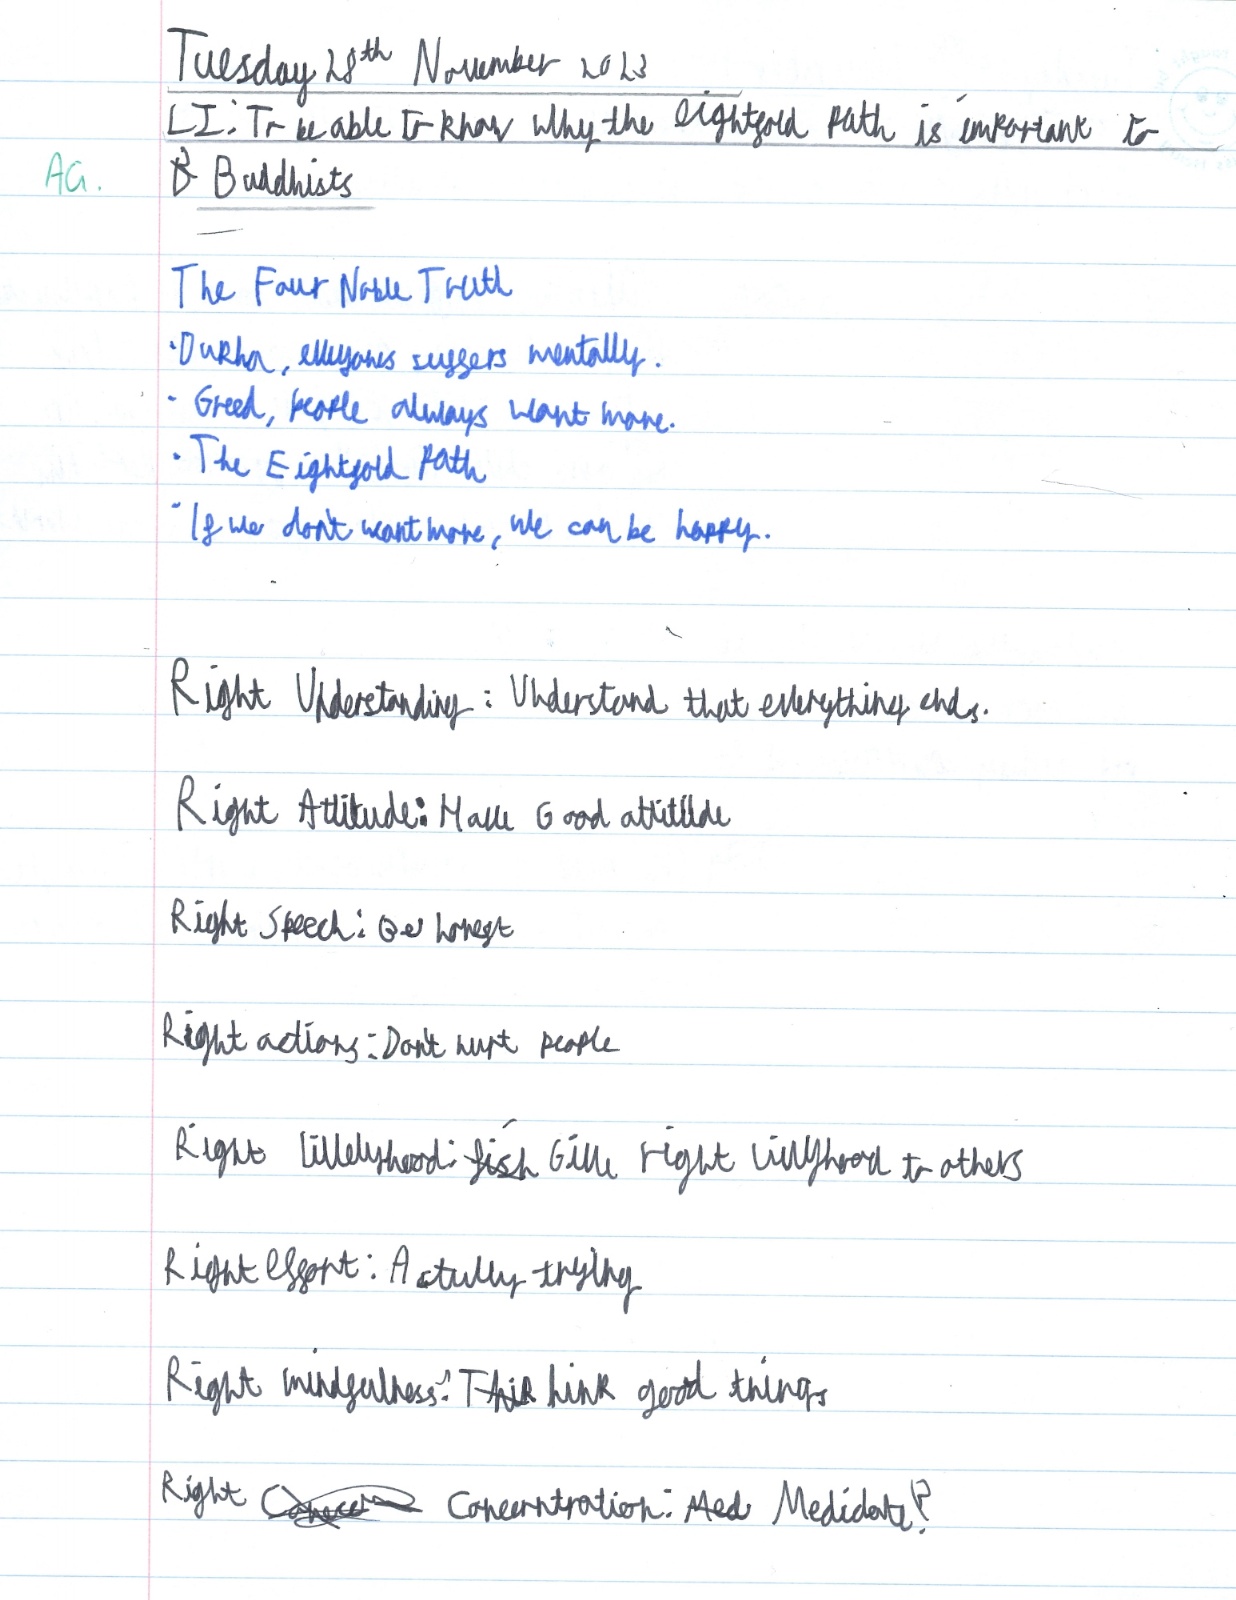 Tuesday 28th November 2023
LI: To be able to know why the eightfold path is important to
B Buddhists
AG.
The Four Noble Truth
· Dukha, everyones suffers mentally.
· Greed, people always want more.
· The Eightfold Path
· If we don't want more, we can be happy.
Right Understanding: Understand that everything ends.
Right Attitude: Have Good attitude
Right Speech: Be honest
Right actions: Don't hurt people
Right Livelyhood: fish Give right livlyhood to others
Right effort: Actully trying
Right mindfulness: Think good things
Right Concerntration: Med Medidate?